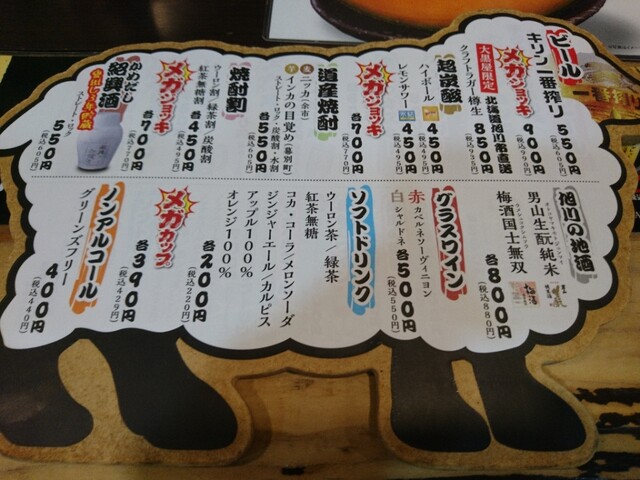 ビール
キリン一番搾り 550円
(税込605円)
メガジョッキ 900円
(税込990円)
大黒屋限定 北海道旭川市直送
クラフトラガー樽生 850円
(税込935円)
超炭酸
ハイボール 450円
(税込495円)
レモンサワー 450円
(税込495円)
メガジョッキ
各700円
(税込770円)
道産焼酎
ニッカ(余市)
インカの目覚め(幕別町)
ストレート・ロック・炭酸割・水割
各550円
(税込605円)
焼酎割
ウーロン割 緑茶割 炭酸割
紅茶無糖割 各450円
(税込495円)
メガジョッキ
各700円
(税込770円)
かめだし
紹興酒
ストレート・ロック
550円
(税込605円)
旭川の地酒
男山生酛純米
梅酒国士無双
各800円
(税込880円)
グラスワイン
赤 カベルネソーヴィニヨン
白 シャルドネ 各500円
(税込550円)
ソフトドリンク
ウーロン茶/緑茶
紅茶無糖
コカ・コーラ/メロンソーダ
ジンジャーエール/カルピス
アップル100%
オレンジ100%
各200円
(税込220円)
メガカップ
各390円
(税込429円)
ノンアルコール
グリーンズフリー
400円
(税込440円)